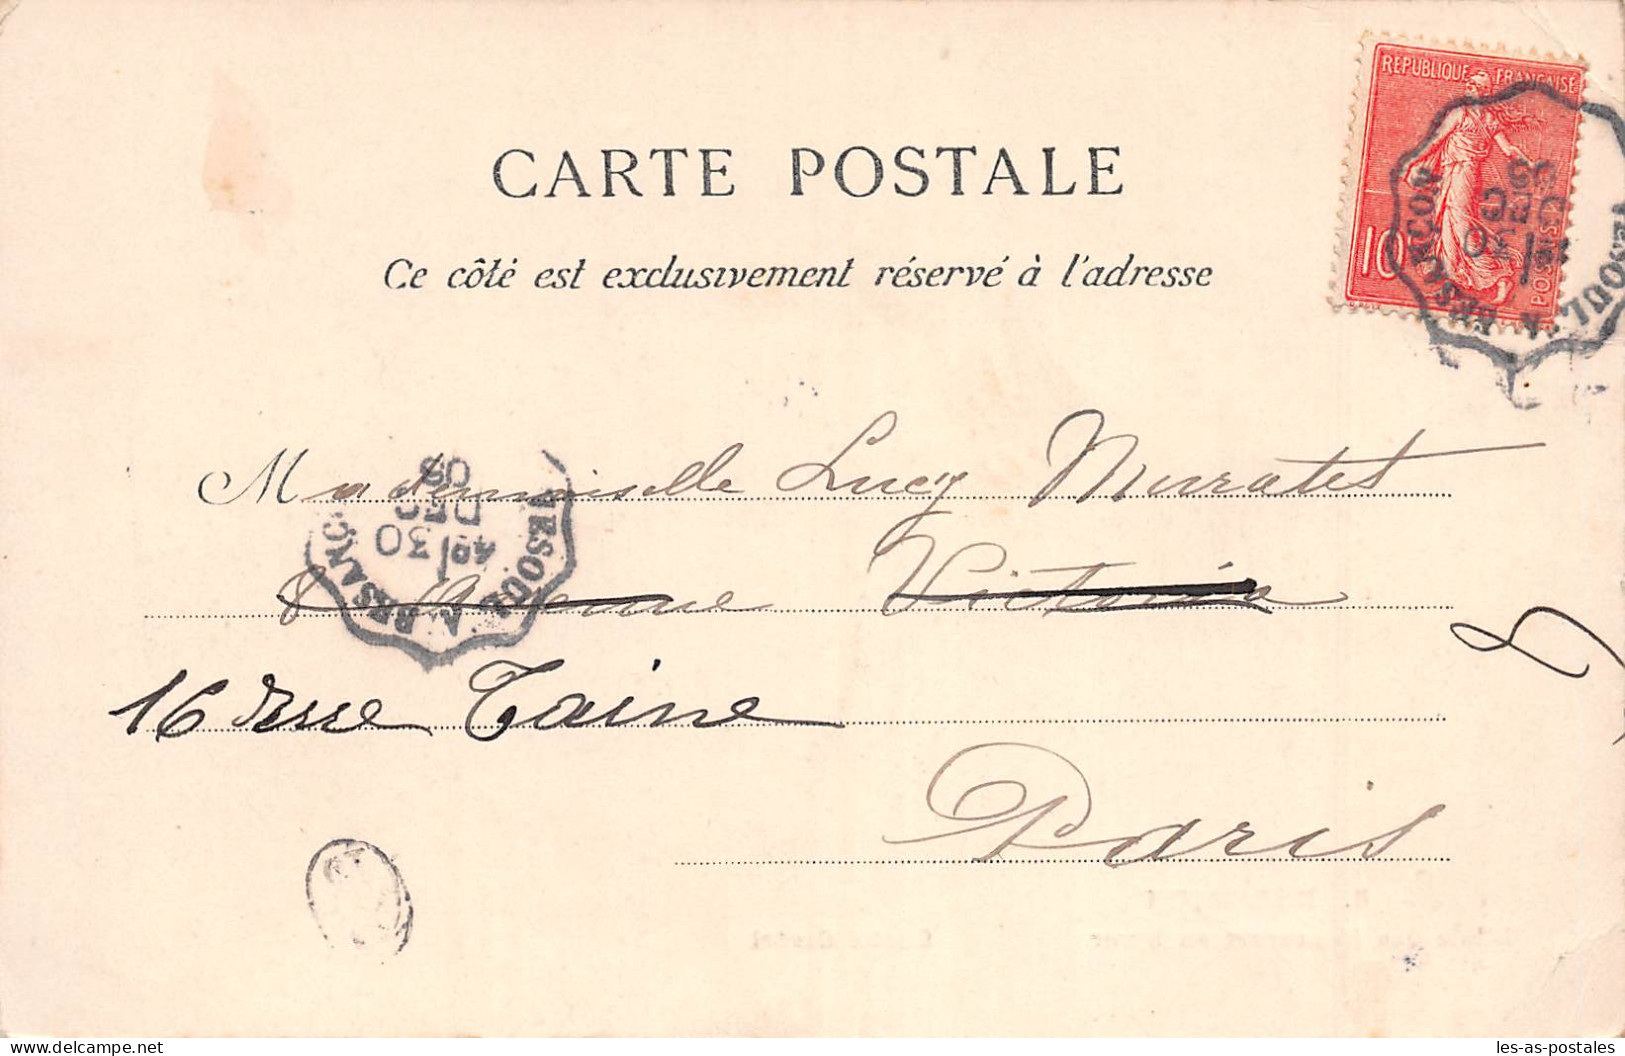 RÉPUBLIQUE FRANÇAISE
10
POSTES
CARTE POSTALE
Ce côté est exclusivement réservé à l'adresse
VESOUL A BESANÇON
30
DEC
05
Mademoiselle Lucy Muratet
VESOUL A BESANÇON
30
DEC
05
8 Avenue Victoria
16 rue Taine
Paris
delcampe.net
les-as-postales